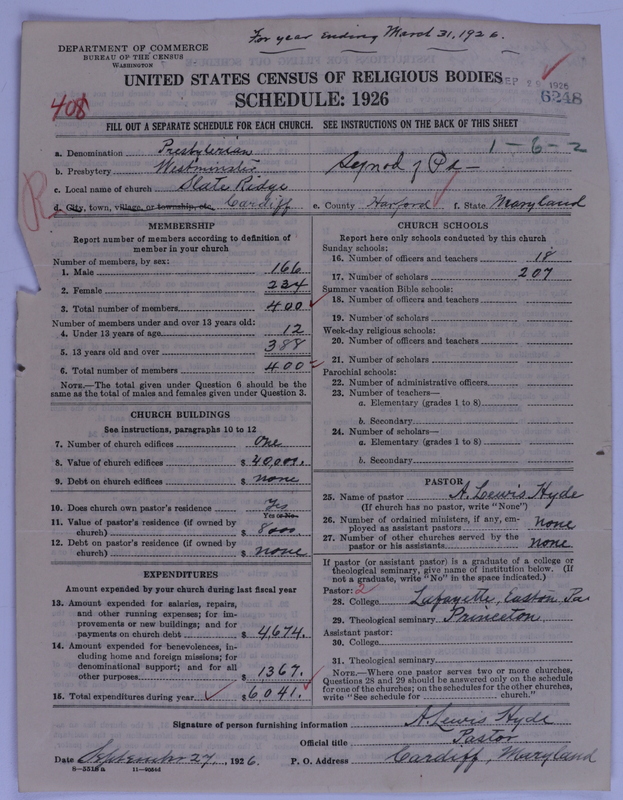 For year ending March 31, 1926.
DEPARTMENT OF COMMERCE
BUREAU OF THE CENSUS
WASHINGTON
UNITED STATES CENSUS OF RELIGIOUS BODIES
SEP 29 1926
SCHEDULE: 1926
6248
408
FILL OUT A SEPARATE SCHEDULE FOR EACH CHURCH. SEE INSTRUCTIONS ON THE BACK OF THIS SHEET
1-6-2
a. Denomination Presbyterian
b. Presbytery Westminster Synod of Pa-
c. Local name of church Slate Ridge
d. City, town, village, or township, etc. Cardiff e. County Harford f. State Maryland
MEMBERSHIP
Report number of members according to definition of
member in your church
Number of members, by sex:
1. Male 166
2. Female 234
3. Total number of members 400
Number of members under and over 13 years old:
4. Under 13 years of age 12
5. 13 years old and over 388
6. Total number of members 400
NOTE.—The total given under Question 6 should be the
same as the total of males and females given under Question 3.
CHURCH BUILDINGS
See instructions, paragraphs 10 to 12
7. Number of church edifices One
8. Value of church edifices $ 40,000.
9. Debt on church edifices $ none
10. Does church own pastor's residence Yes
Yes or No.
11. Value of pastor's residence (if owned by
church) $ 8000
12. Debt on pastor's residence (if owned by
church) $ none
EXPENDITURES
Amount expended by your church during last fiscal year
13. Amount expended for salaries, repairs,
and other running expenses; for im-
provements or new buildings; and for
payments on church debt $ 4674.
14. Amount expended for benevolences, in-
cluding home and foreign missions; for
denominational support; and for all
other purposes $ 1367.
15. Total expenditures during year $ 6041.
CHURCH SCHOOLS
Report here only schools conducted by this church
Sunday schools:
16. Number of officers and teachers 18
17. Number of scholars 207
Summer vacation Bible schools:
18. Number of officers and teachers
19. Number of scholars
Week-day religious schools:
20. Number of officers and teachers
21. Number of scholars
Parochial schools:
22. Number of administrative officers
23. Number of teachers—
a. Elementary (grades 1 to 8)
b. Secondary
24. Number of scholars—
a. Elementary (grades 1 to 8)
b. Secondary
PASTOR
25. Name of pastor A. Lewis Hyde
(If church has no pastor, write "None")
26. Number of ordained ministers, if any, em-
ployed as assistant pastors none
27. Number of other churches served by the
pastor or his assistants none
If pastor (or assistant pastor) is a graduate of a college or
theological seminary, give name of institution below. (If
not a graduate, write "No" in the space indicated.)
Pastor: 2
28. College Lafayette, Easton Pa
29. Theological seminary Princeton
Assistant pastor:
30. College
31. Theological seminary
NOTE.—Where one pastor serves two or more churches,
Questions 28 and 29 should be answered only on the schedule
for one of the churches; on the schedules for the other churches,
write "See schedule for church."
Signature of person furnishing information A. Lewis Hyde
Official title Pastor
Date September 27, 1926. P. O. Address Cardiff, Maryland
8-5518a 11-